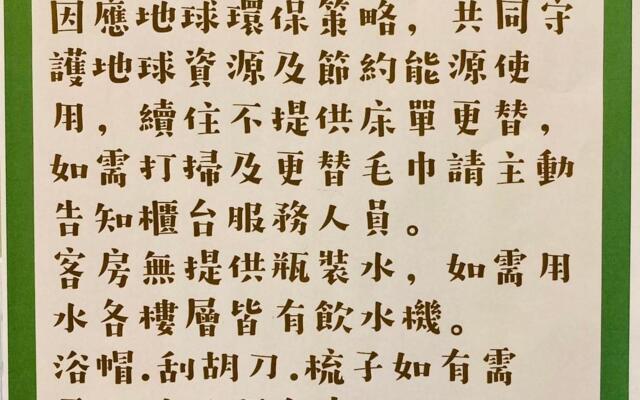 因應地球環保策略，共同守
護地球資源及節約能源使
用，續住不提供床單更替，
如需打掃及更替毛巾請主動
告知櫃台服務人員。
客房無提供瓶裝水，如需用
水各樓層皆有飲水機。
浴帽.刮胡刀.梳子如有需